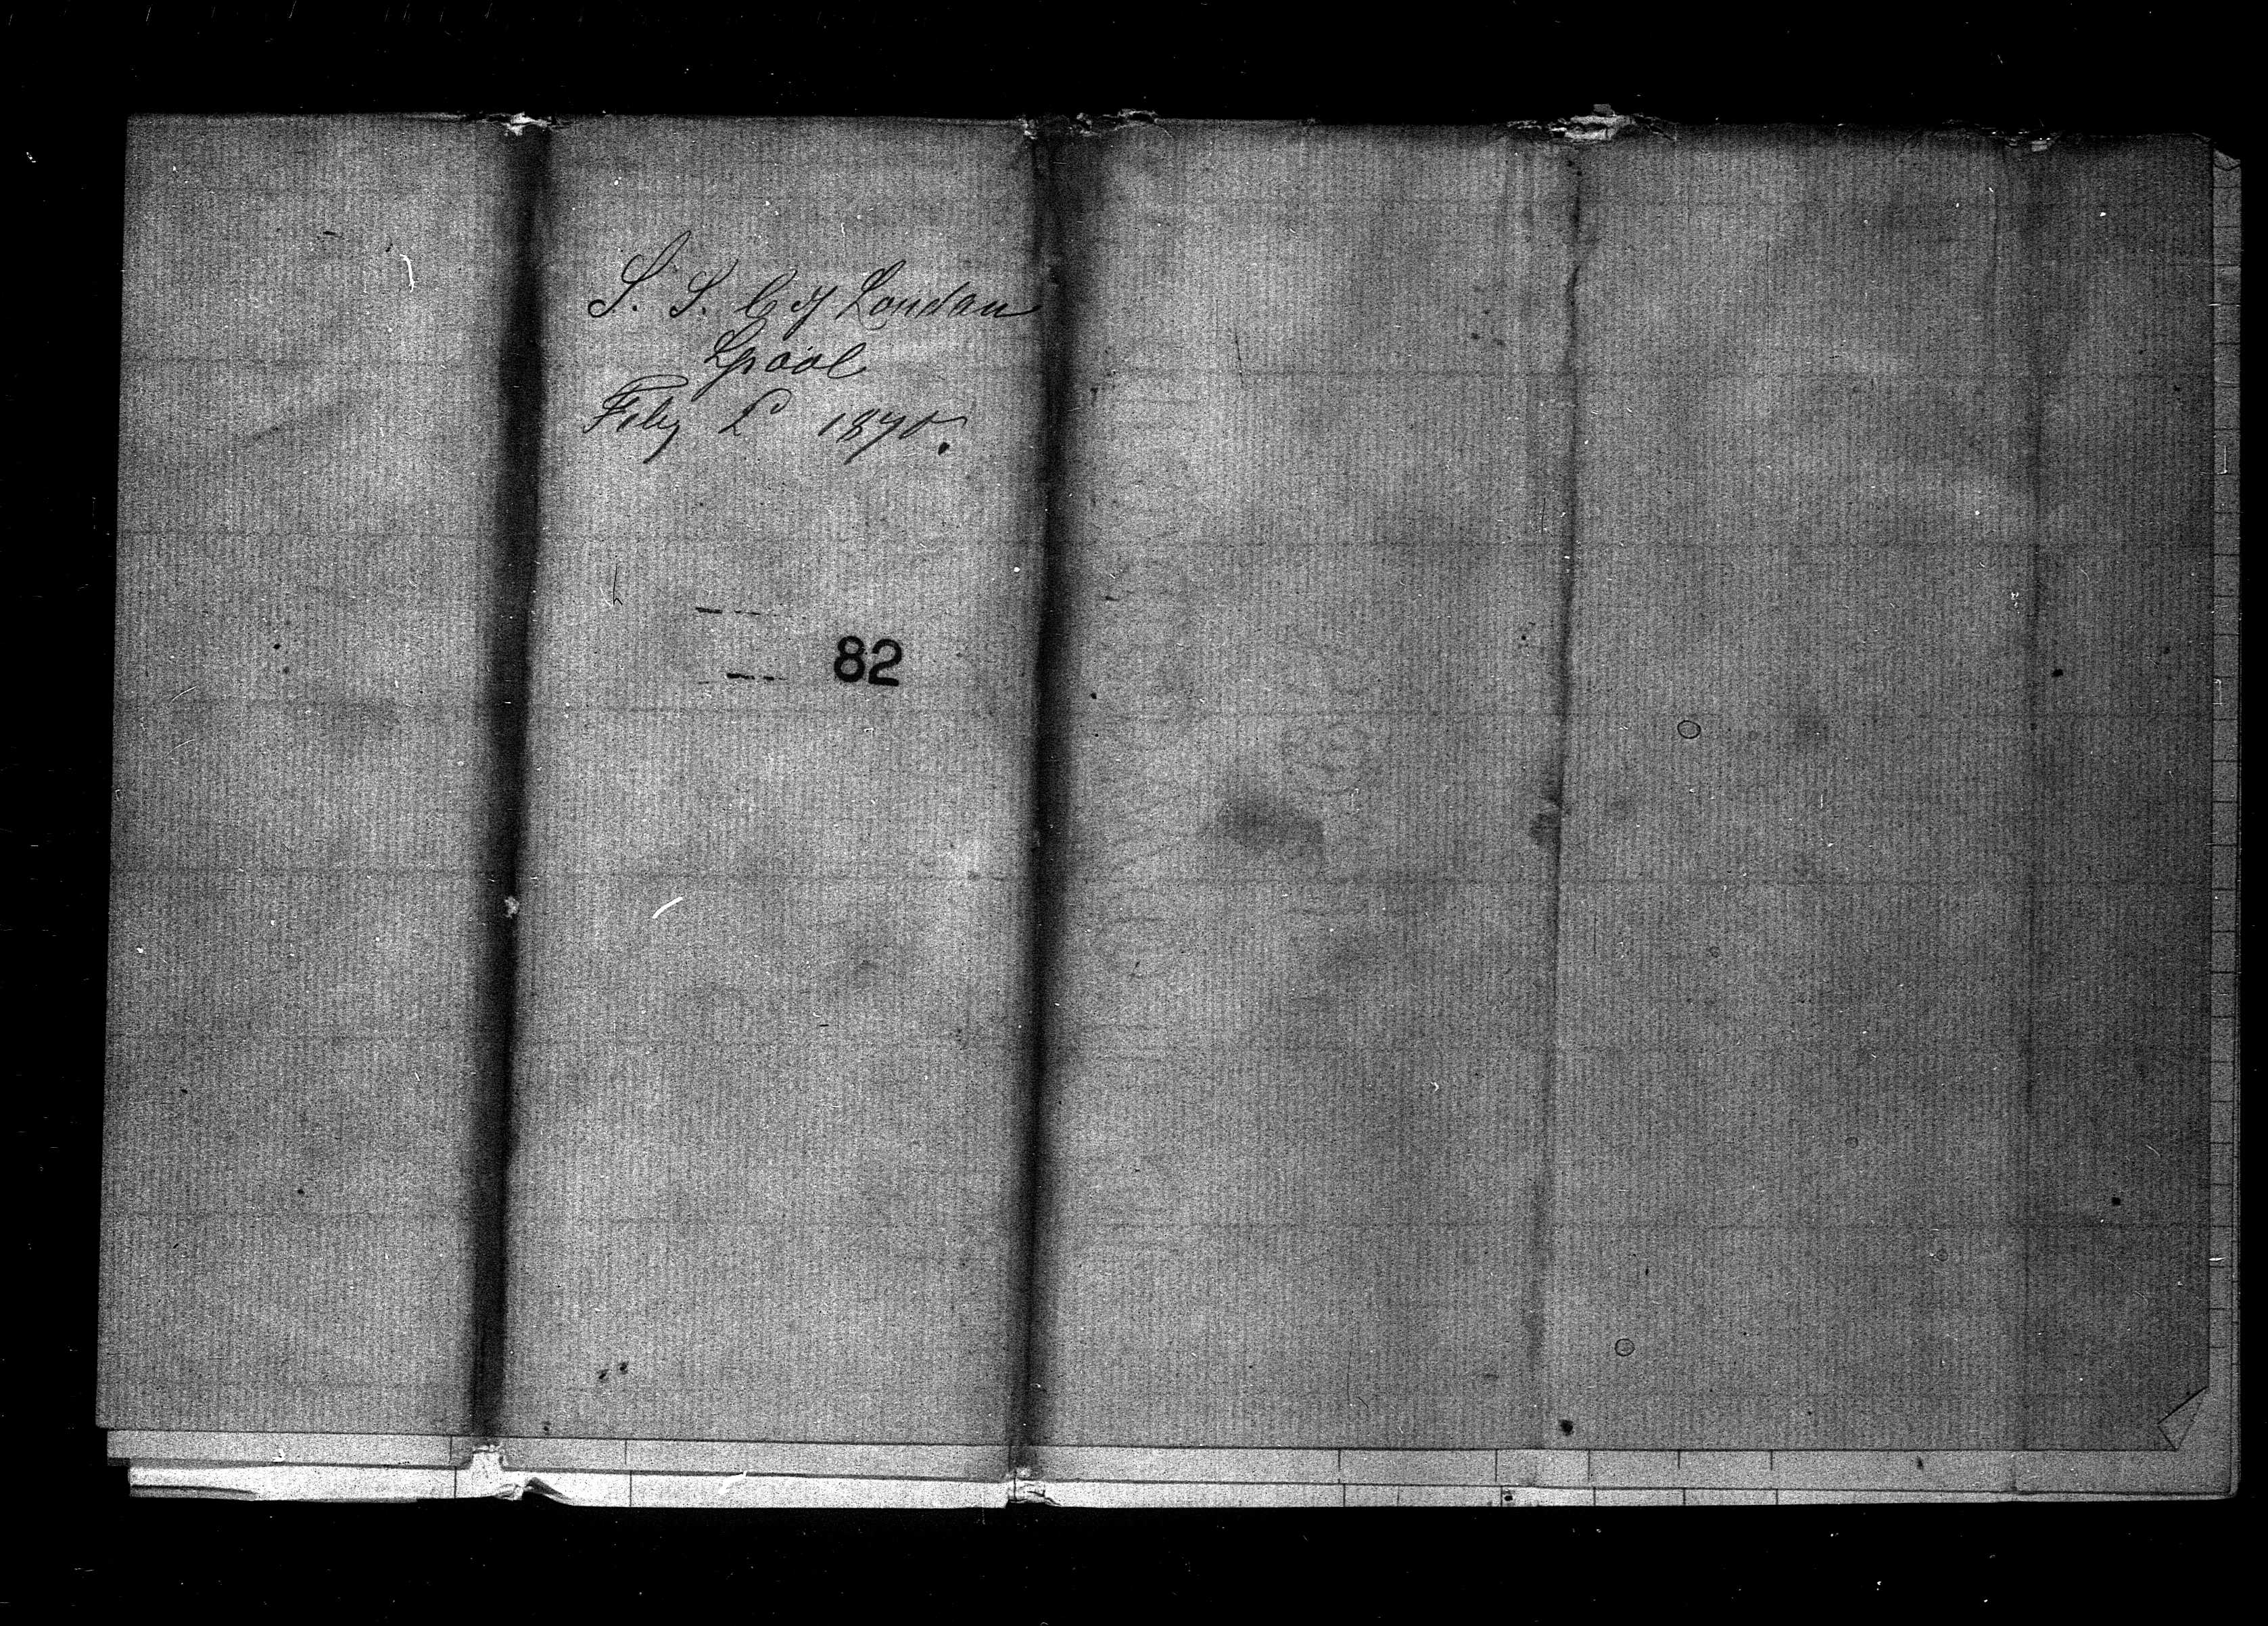 S. S. C of London
Lpool
Feby 2 1870.
82